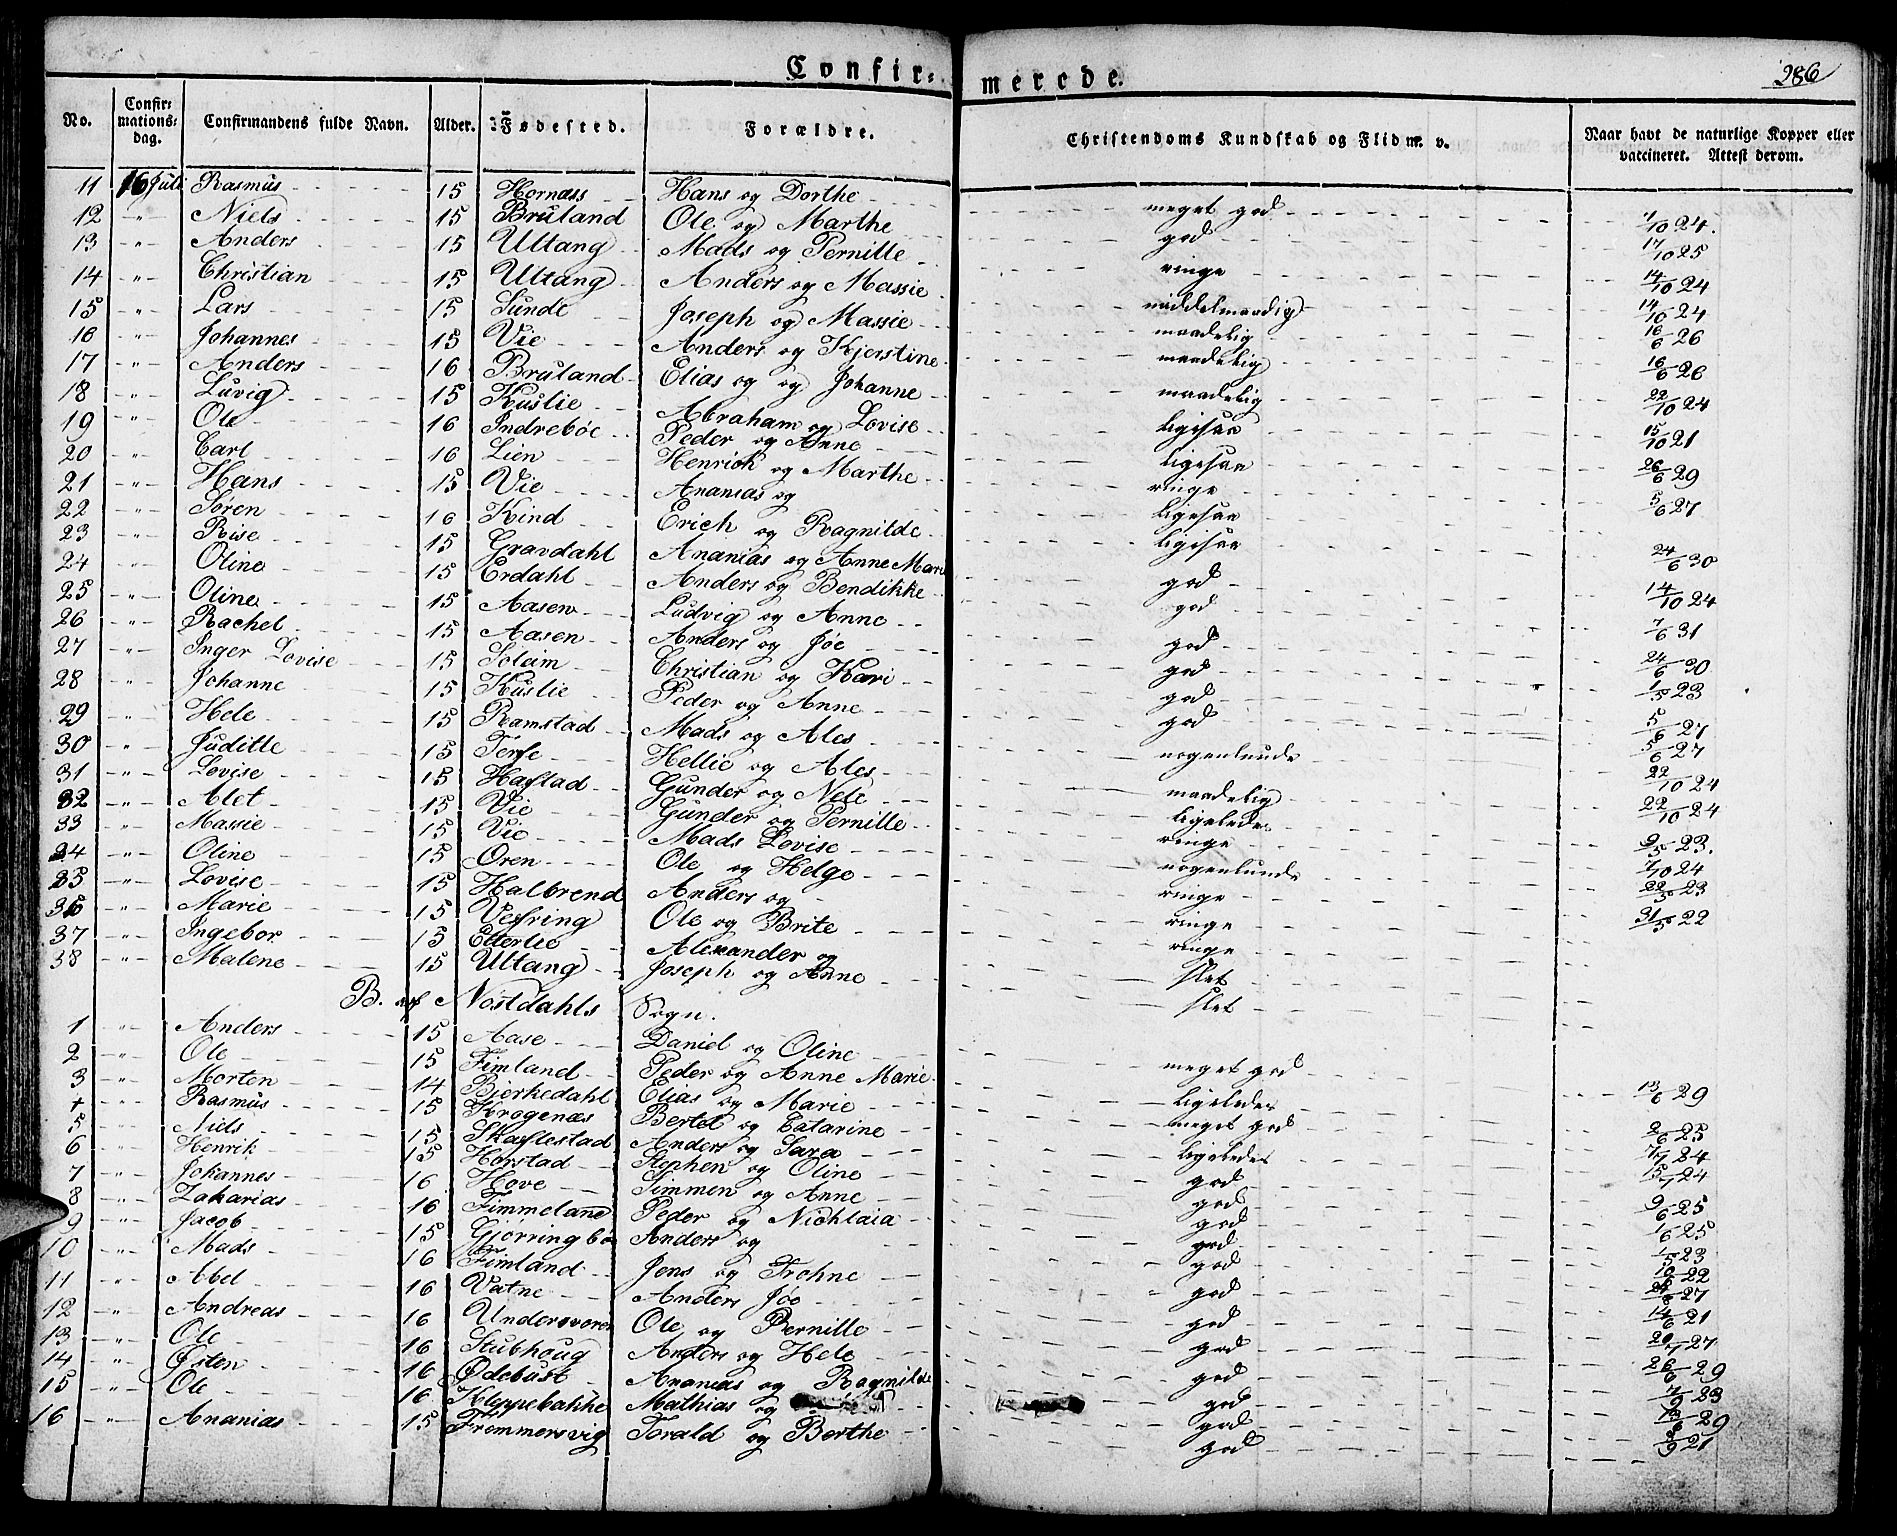 Confir-
merede.
286
No.
Confir-mations-dag.
Confirmandens fulde Navn.
Alder.
Fødested.
Forældre.
Christendoms Kundskab og Flid m. v.
Naar havt de naturlige Kopper eller vaccineret. Attest derom.
11 16 Juli Rasmus 15 Hornæss Hans og Dorthe meget god 7/10 24.
12 -"- Niels 15 Bruland Ole og Marthe god 17/10 25
13 -"- Anders 15 Ultang Mads og Pernille ringe 14/10 24
14 -"- Christian 15 Ultang Anders og Massie middelmaadig 14/10 24
15 -"- Lars 15 Sunde Joseph og Massie maadelig 16/6 26
16 -"- Johannes 15 Vie Anders og Kjerstine maadelig 16/6 26
17 -"- Anders 16 Bruland Elias og og Johanne maadelig 22/10 24
18 -"- Luvig 15 Kuslie Abraham og Lovise ligesaa 15/10 21
19 -"- Ole 16 Indrebøe Peder og Anne ligesaa 26/6 29
20 -"- Carl 16 Lien Henrich og Marthe ringe 5/6 27
21 -"- Hans 15 Vie Ananias og ligesaa
22 -"- Søren 16 Kind Erich og Ragnilde ligesaa 24/6 30
23 -"- Rise 15 Gravdahl Ananias og Anne Marie god 14/10 24
24 -"- Oline 15 Erdahl Anders og Bendikke god 7/6 31
25 -"- Oline 15 Aasen Ludvig og Anne god 24/6 30
26 -"- Rachel 15 Aasen Anders og Jøe god 1/5 23
27 -"- Inger Lovise 15 Soleim Christian og Kari god 5/6 27
28 -"- Johanne 15 Kuslie Peder og Anne god 5/6 27
29 -"- Hele 15 Ramstad Mads og Ales nogenlunde 22/10 24
30 -"- Juditte 15 Terfe Hellie og Ales maadelig 22/10 24
31 -"- Lovise 15 Hafstad Gunder og Nele ligeledes 9/5 23.
32 -"- Alet 15 Vie Gunder og Pernille ringe 7/10 24
33 -"- Massie 15 Vie Mads Lovise nogenlunde 22/5 23
34 -"- Oline 15 Øren Ole og Helge ringe 31/5 22
35 -"- Lovise 15 Halbrend Anders og ringe
36 -"- Marie 15 Vefring Ole og Brite ringe
37 -"- Ingebor 15 Etterlie Alexander og slet
38 -"- Malene 15 Ultang Joseph og Anne slet
B. af Nostdahls Sogn.
1 -"- Anders 15 Aase Daniel og Oline meget god
2 -"- Ole 15 Fimland Peder og Anne Marie ligeledes 13/6 29
3 -"- Morten 14 Bjerkedahl Elias og Marie meget god 2/6 25
4 -"- Rasmus 15 Krogenæs Bertel og Catarine ligeledes 7/7 24
5 -"- Niels 15 Skaflestad Anders og Sara god 15/7 24
6 -"- Henrik 15 Horstad Stephen og Oline god 9/6 25
7 -"- Johannes 16 Hove Simmen og Anne god 1/6 25
8 -"- Zakarias 16 Fimmeland Peder og Nichlaia god 1/5 23
9 -"- Jacob 15 Gjørringbø Anders og god 10/6 22
10 -"- Mads 16 Fimland Jens og Trohne god 27
11 -"- Abel 16 Vatne Anders Jøe god 14/6 21
12 -"- Andreas 16 Undersvoren Ole og Pernille god 20/7 27
13 -"- Ole 16 Stubhoug Anders og Hele god 26/6 29
14 -"- Østen 16 Ødebust Ananias og Ragnilde god 7/9 23
15 -"- Ole 16 Kleppebakke Mathias og god 13/6 29
16 -"- Ananias 15 Fremmersvig Torald og Berthe god 8/9 21